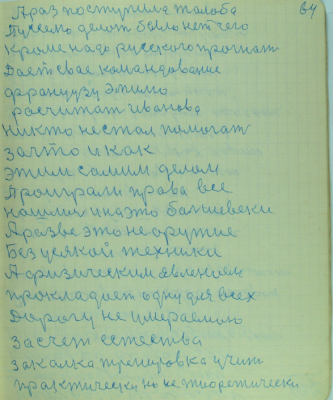 А раз поступила жалоба
64
Пусело делат было нет чего
Кроме надо русского прогнат
Дает свае командование
французу Эмилю
расчитат иванова
никто не стал помогат
за что и как
этим самим делам
Проиграли права все
нашли и на это балшевеки
А разве это не оружие
Без усякой техники
А физическим явлением
прокладает одну для всех
Дорогу не умераемою
за счет естества
закалка тренировка учит
практически но не теоретически